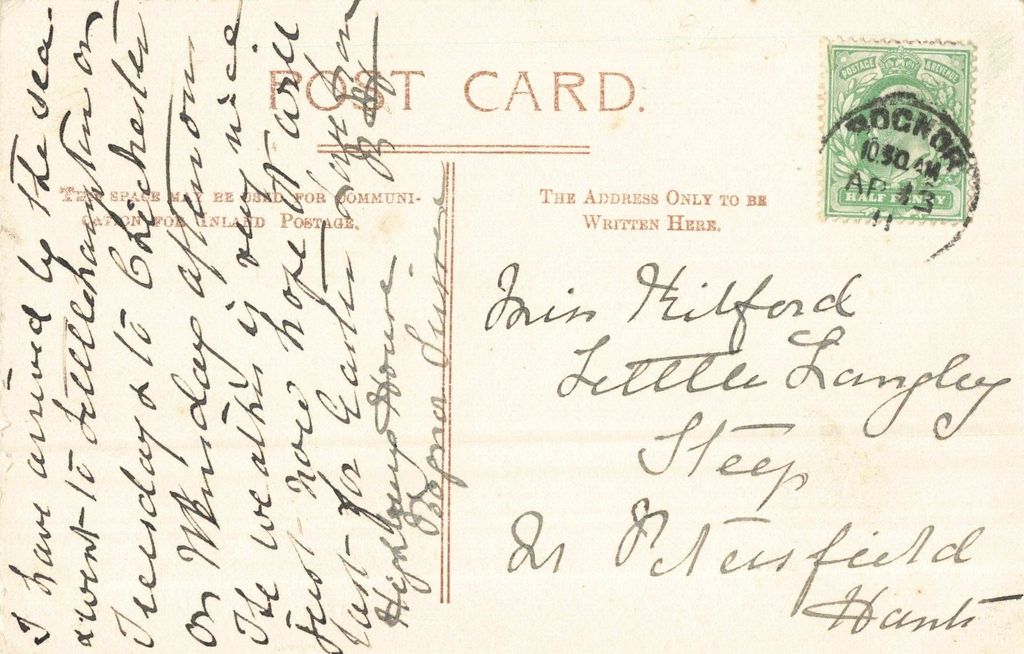 POST CARD.
THIS SPACE MAY BE USED FOR COMMUNI-
CATION FOR INLAND POSTAGE.
THE ADDRESS ONLY TO BE
WRITTEN HERE.
POSTAGE & REVENUE
HALF PENNY
BOGNOR
10.30 AM
AP 13
11
I have arrived by the sea
& went to Littlehampton on
Tuesday & to Chichester
on Wednesday afternoon
The weather is very nice
just now hope it will
last for Easter
Highbury House
Bognor Sussex
Miss Kilford
Little Langley
Steep
Nr Petersfield
Hants